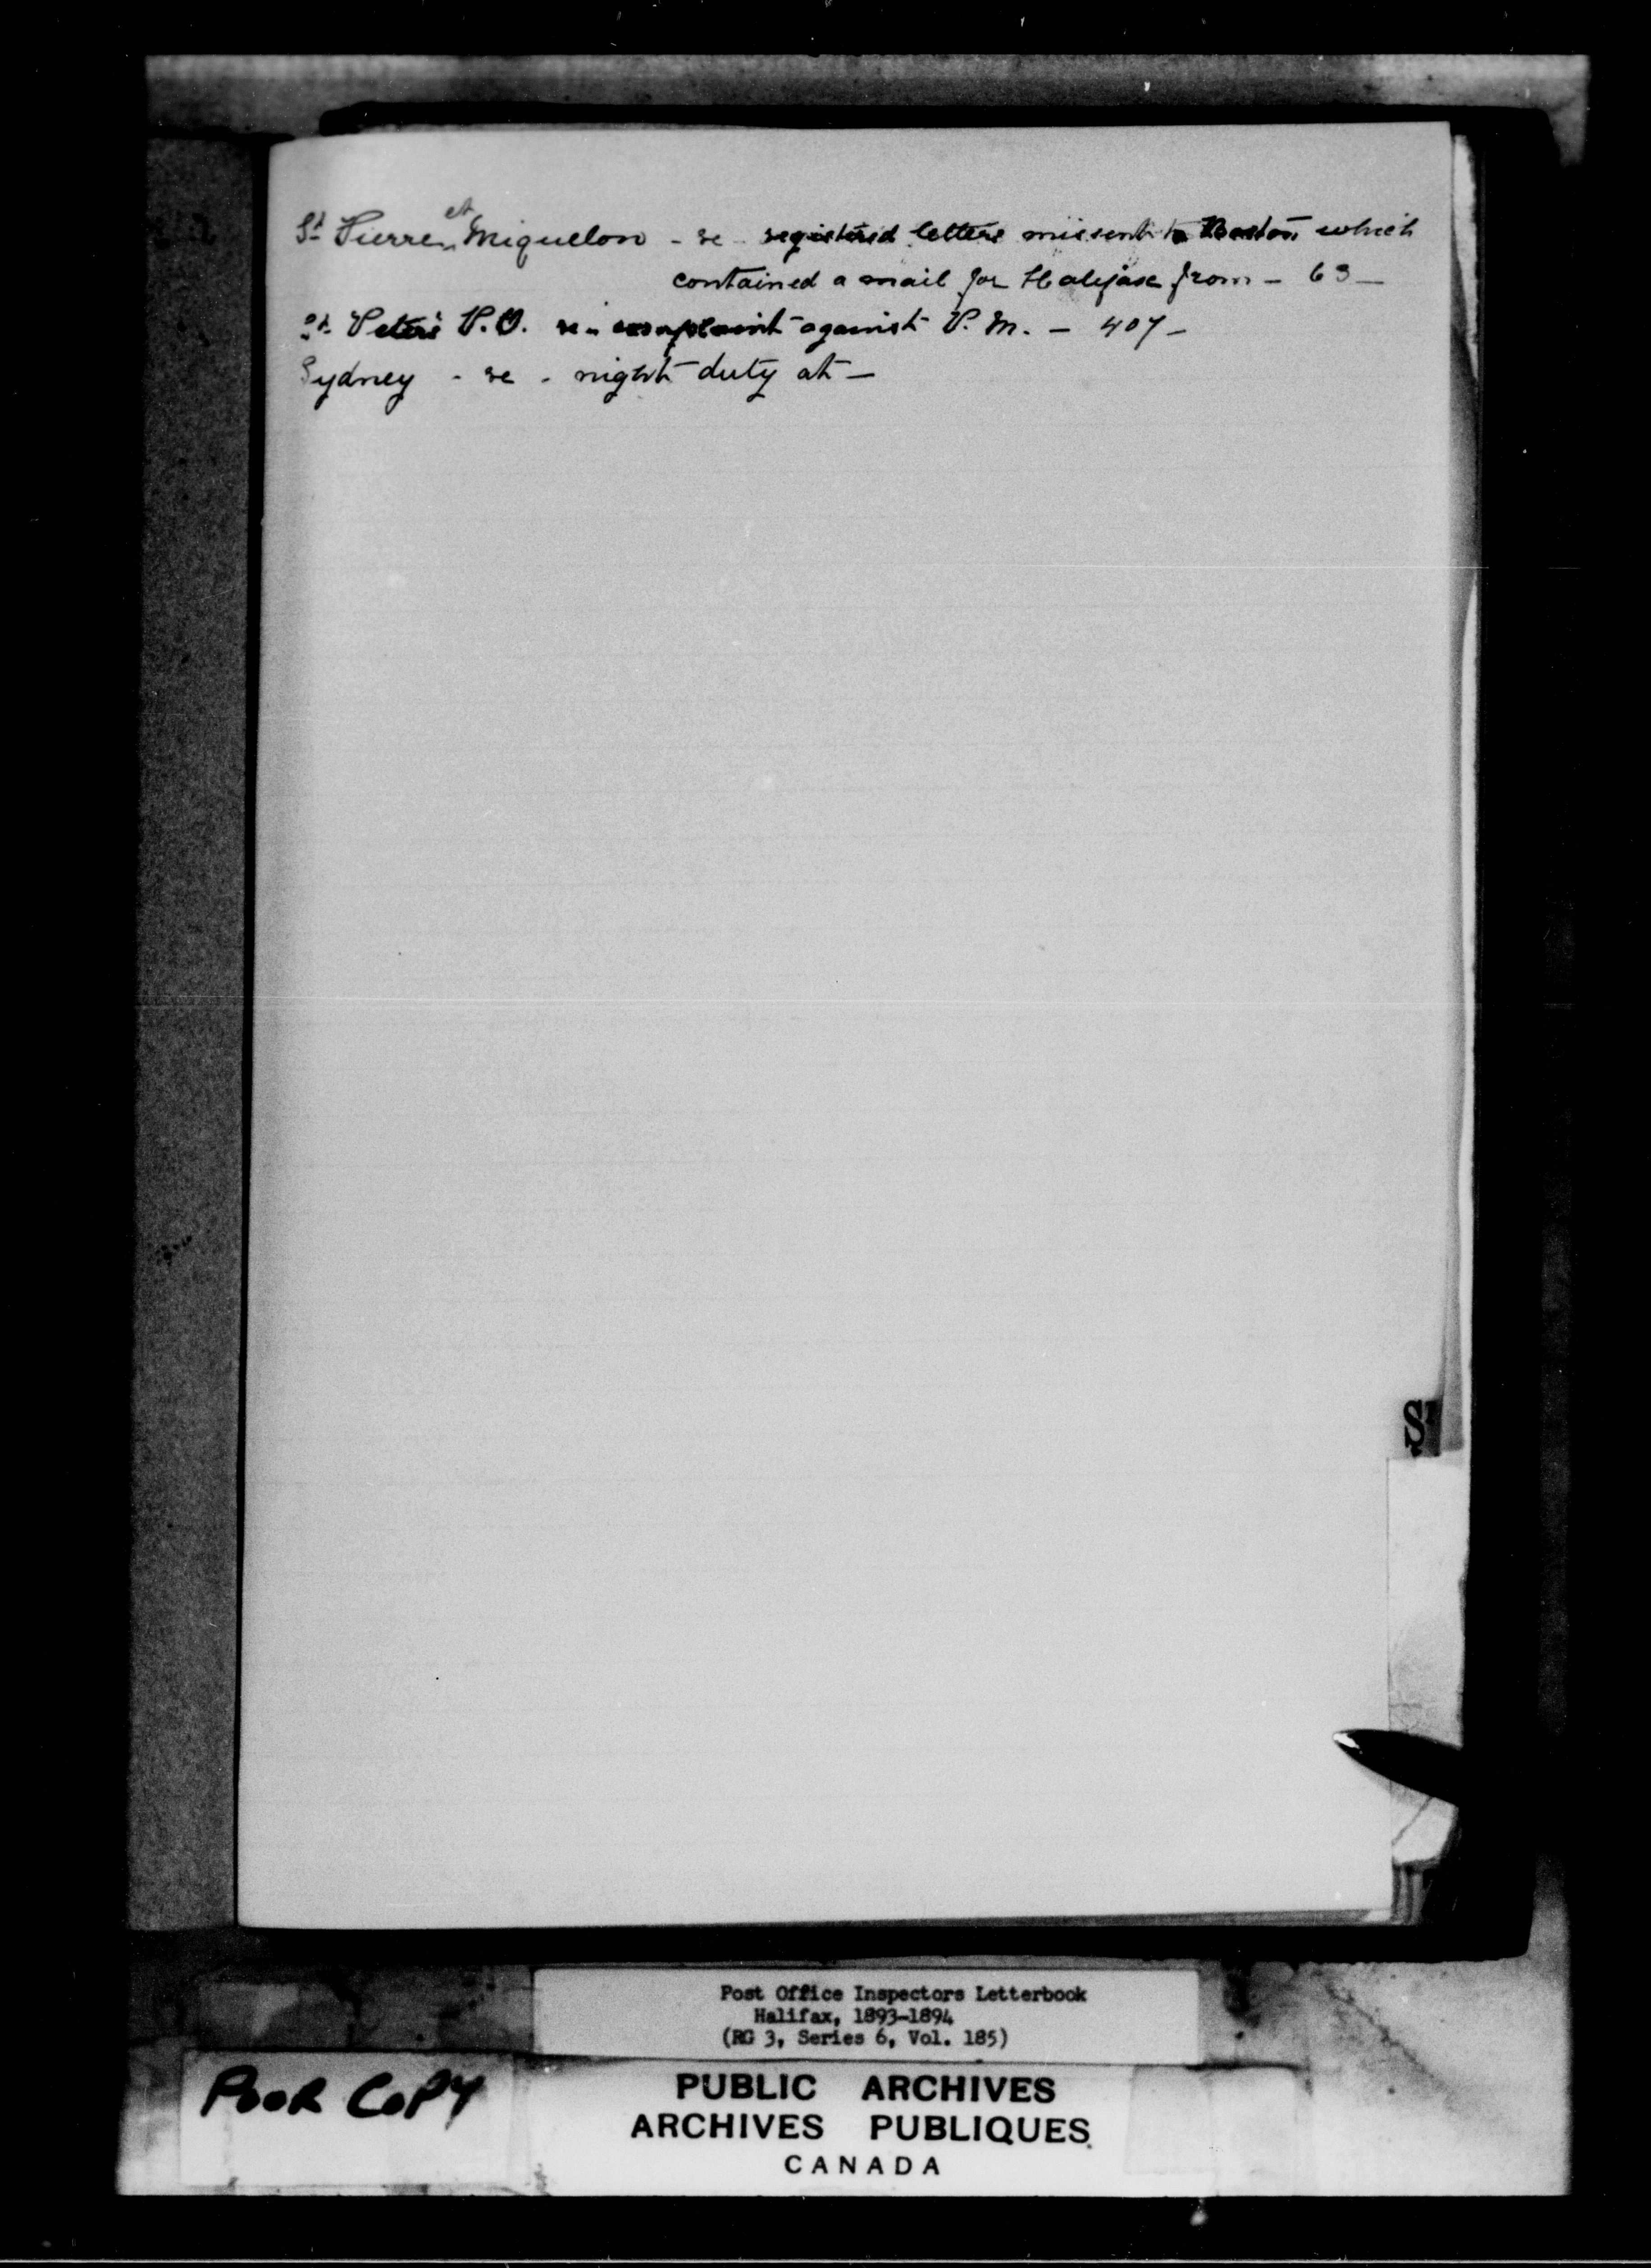 St Pierre et Miquelon - re - registered letters missent to Boston which
contained a mail for Halifax from - 63 -
St. Peters P.O. re - complaint against P.M. - 407 -
Sydney - re - night duty at -
S
Post Office Inspectors Letterbook
Halifax, 1893-1894
(RG 3, Series 6, Vol. 185)
POOR COPY
PUBLIC ARCHIVES
ARCHIVES PUBLIQUES
CANADA